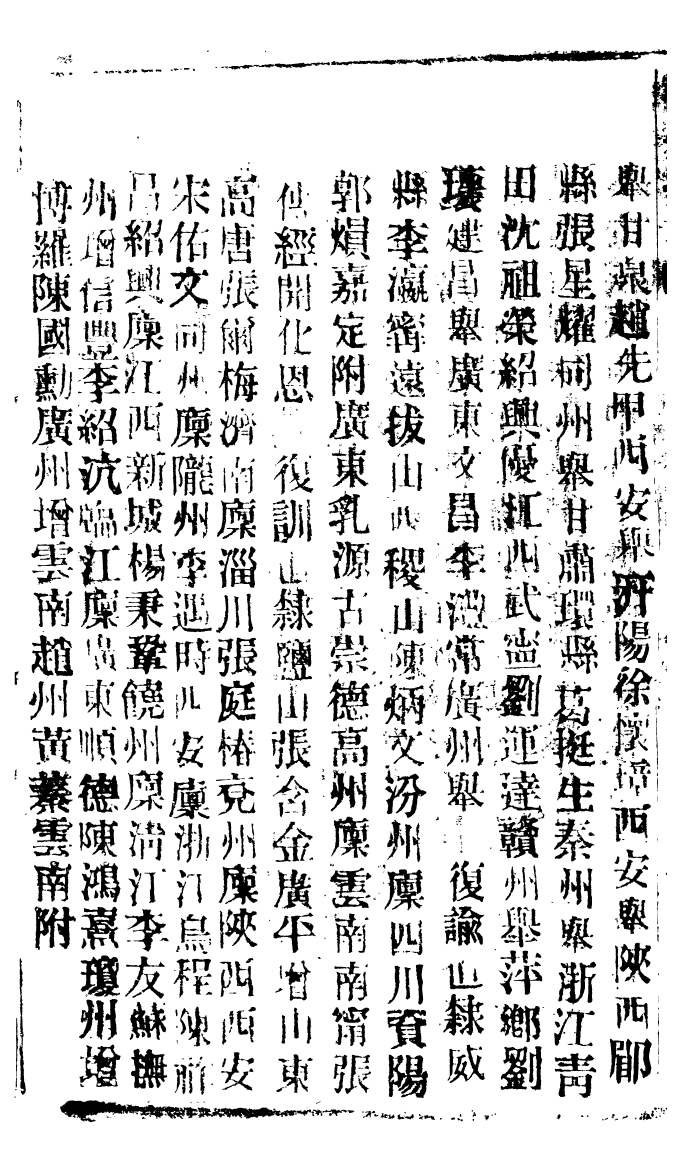 舉甘泉趙先甲西安舉汧陽徐懷璋西安舉陜西郿
縣張星耀同州舉甘肅環縣葛挺生秦州舉浙江靑
田沈祖榮紹興優江西武寧劉運達贛州舉萍鄉劉
瓊建昌舉廣東文昌李澧廣州舉 復諭直隸威
縣李瀛甯遠拔山西稷山陳炳文汾州廩四川資陽
郭熉嘉定附廣東乳源古崇德高州廩雲南南甯張
經開化恩 復訓直隸鹽山張含金廣平增山東
高唐張爾梅濟南廩淄川張庭椿兗州廩陜西西安
宋佑文同州廩隴州李遇時西安廩浙江烏程陳
呂紹興廩江西新城楊秉鞏饒州廩淸江李友蘇撫
州增信豐李紹沆臨江廩廣東順德陳鴻熹瓊州增
博羅陳國勳廣州增雲南趙州黃蓁雲南附